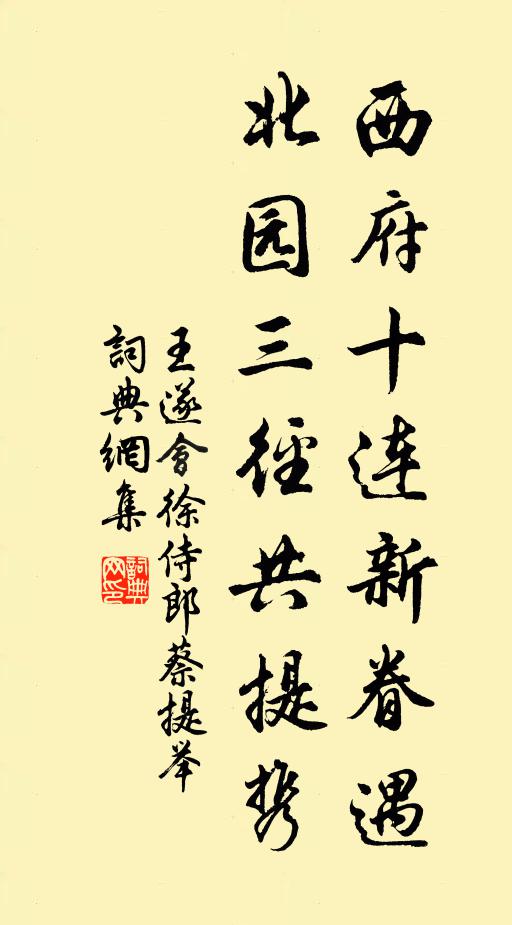 西府十连新眷遇
北园三径共提携
王遂會徐侍郎蔡提举
詞典網集
詞典网印